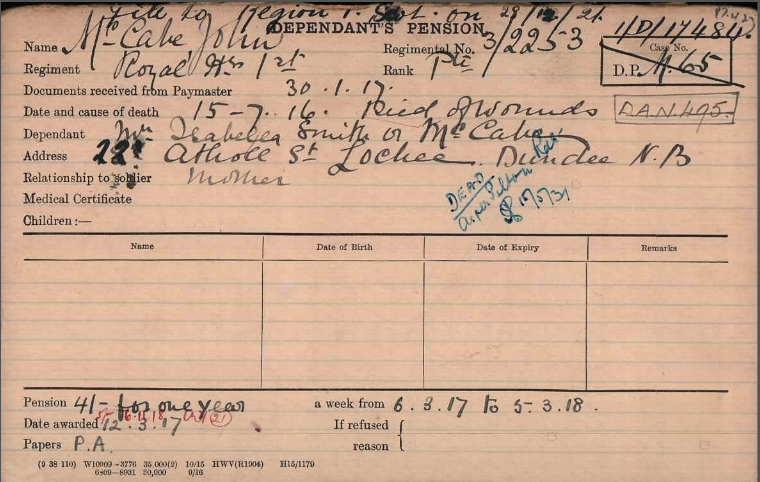 File to Region 1. Scot. on 28/12/21.
DEPENDANT'S PENSION
Name McCabe, John
Regimental No. 3/2253
1/D/17484
Regiment Royal Hrs 1st
Rank Pte
Case No.
D.P. M.65
Documents received from Paymaster 30.1.17.
Date and cause of death 15-7.16. Died of Wounds
DAN495.
Dependant Mrs Isabella Smith or McCabe
Address 22 Atholl St Lochee. Dundee N.B
Relationship to soldier Mother
DEAD
Medical Certificate
Children:—
Name Date of Birth Date of Expiry Remarks
Pension 4/- for one year a week from 6.3.17 to 5.3.18.
5/- 6.11.18 (21)
Date awarded 12.3.17 If refused
Papers P.A. reason
(9 38 110) W10909-3776 35,000(2) 10/15 HWV(R1904) H15/1179
6809-8931 30,000 9/16